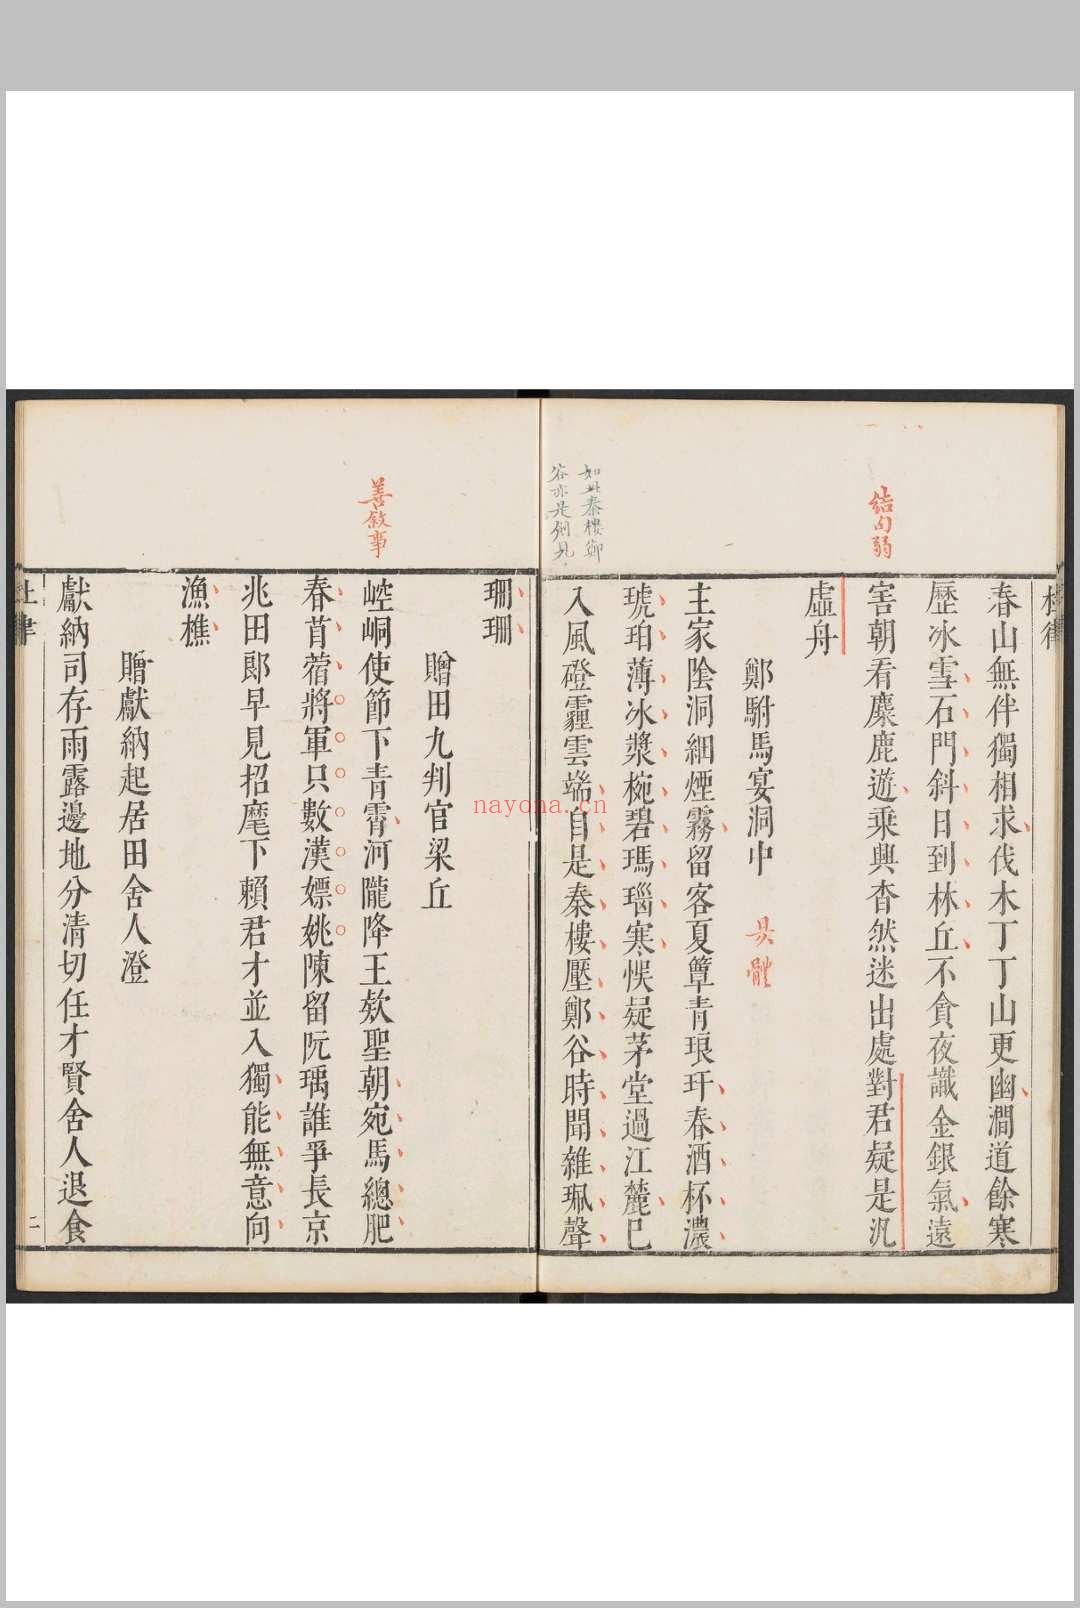 杜律
春山無伴獨相求伐木丁丁山更幽澗道餘寒
歷冰雪石門斜日到林丘不貪夜識金銀氣遠
結句弱
害朝看麋鹿遊乗興杳然迷出處對君疑是汎
虛舟
鄭駙馬宴洞中 具體
主家陰洞細煙霧留客夏簟青琅玕春酒杯濃
琥珀薄冰漿椀碧瑪瑙寒悞疑茅堂過江麓巳
如此秦樓鄭
谷亦是創見
入風磴霾雲端自是秦樓壓鄭谷時聞雜珮聲
珊珊
贈田九判官梁丘
善敘事
崆峒使節下青霄河隴降王欵聖朝宛馬總肥
春苜蓿將軍只數漢嫖姚陳留阮瑀誰爭長京
兆田郞早見招麾下賴君才並入獨能無意向
漁樵
贈獻納起居田舍人澄
獻納司存雨露邊地分清切任才賢舍人退食
杜律 二
nayona.cn